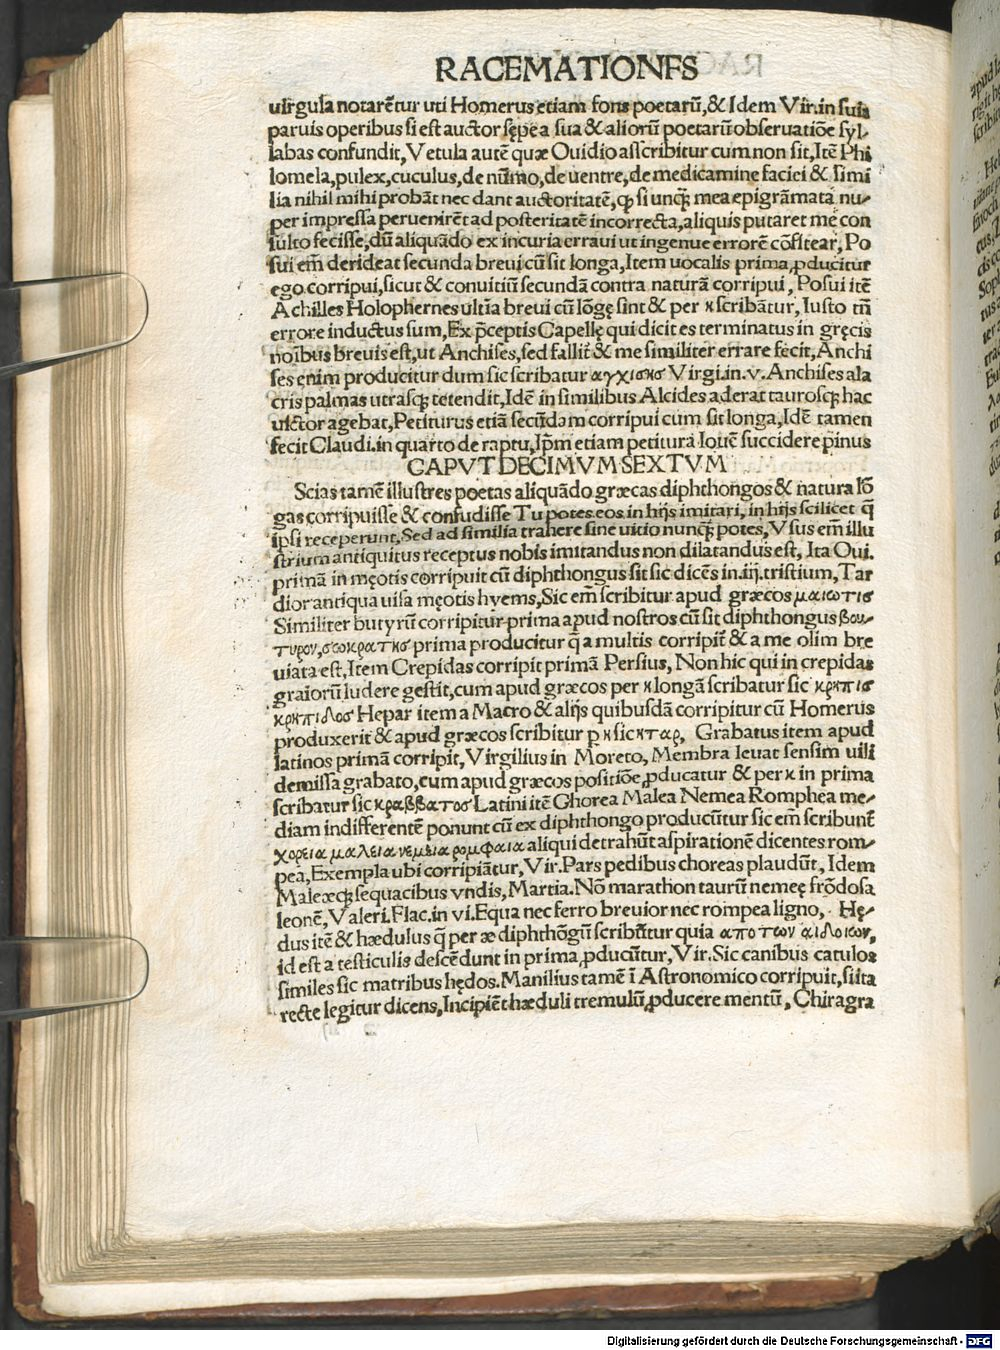 RACEMATIONES
uirgula notarētur uti Homerus etiam fons poetarū, & Idem Vir. in suis
paruis operibus si est auctor sępe a sua & aliorū poetarū obseruatiōe syl-
labas confundit, Vetula autē quæ Ouidio asscribitur cum non sit, Itē Phi
lomela, pulex, cuculus, de nūmo, de uentre, de medicamine faciei & simi
lia nihil mihi probāt nec dant auctoritatē, ꝙ si unꝗ̄ mea epigrāmata nu-
per impressa peruenirēt ad posteritatē incorrecta, aliquis putaret me con
sulto fecisse, dū aliquādo ex incuria erraui ut ingenue errorē cōfitear, Po
sui em̄ derideat secunda breui cū sit longa, Item uocalis prima ꝓducitur
ego corripui, sicut & conuitiū secundā contra naturā corripui, Posui itē
Achilles Holophernes ultīa breui cū lōgę sint & per η scribāntur, Iusto tn̄
errore inductus sum, Ex p̄ceptis Capellę qui dicit es terminatus in gręcis
noībus breuis est, ut Anchises, sed fallit̄ & me similiter errare fecit, Anchi
ses enim producitur dum sic scribatur αγχισης Virgi. in .v. Anchises ala
cris palmas utrasqꝫ tetendit, Idē in similibus Alcides aderat taurosqꝫ hac
uictor agebat, Petiturus etiā secūdam corripui cum sit longa, Idē tamen
fecit Claudi. in quarto de raptu, Ip̄m etiam petitura Iouē succidere pinus
CAPVT DECIMVM SEXTVM
Scias tamē illustres poetas aliquādo græcas diphthongos & natura lō
gas corripuisse & confudisse Tu potes eos in hijs imitari, in hijs scilicet q̄
ipsi receperunt, Sed ad similia trahere sine uicio nunꝗ̄ potes, Vsus em̄ illu
strium antiquitus receptus nobis imitandus non dilatandus est, Ita Oui.
primā in męotis corripuit cū diphthongus sit sic dicēs in .iij. tristium, Tar
dior antiqua uisa męotis hyems, Sic em̄ scribitur apud græcos μαιωτις
Similiter butyrū corripitur prima apud nostros cū sit diphthongus βου-
τυρον, σωκρατης prima producitur q̄ a multis corripit̄ & a me olim bre
uiata est, Item Crepidas corripit primā Persius, Non hic qui in crepidas
graiorū ludere gestit, cum apud græcos per η longā scribatur sic κρηπις
κρηπιδος Hepar item a Macro & alijs quibusdā corripitur cū Homerus
produxerit & apud græcos scribitur ꝑ η sic ηταρ, Grabatus item apud
latinos primā corripit, Virgilius in Moreto, Membra leuat sensim uili
demissa grabato, cum apud græcos positiōe ꝓducatur & per κ in prima
scribatur sic κραββατος Latini itē Chorea Malea Nemea Romphea me-
diam indifferentē ponunt cū ex diphthongo producūtur sic em̄ scribunt̄
χορεια μαλεια νεμεια ρομφαια aliqui detrahūt aspirationē dicentes rom-
pea, Exempla ubi corripiātur, Vir. Pars pedibus choreas plaudūt, Idem
Maleæqꝫ sequacibus vndis, Martia. Nō marathon taurū nemeę frōdosa
leonē, Valeri. Flac. in vi. Equa nec ferro breuior nec rompea ligno, Hę-
dus itē & hædulus q̄ per æ diphthōgū scribūtur quia απο των αιδοιων,
id est a testiculis descēdunt in prima ꝓducūtur, Vir. Sic canibus catulos
similes sic matribus hędos. Manilius tamē ī Astronomico corripuit, si ita
recte legitur dicens, Incipiēt hæduli tremulū ꝓducere mentū, Chiragra
Digitalisierung gefördert durch die Deutsche Forschungsgemeinschaft - DFG